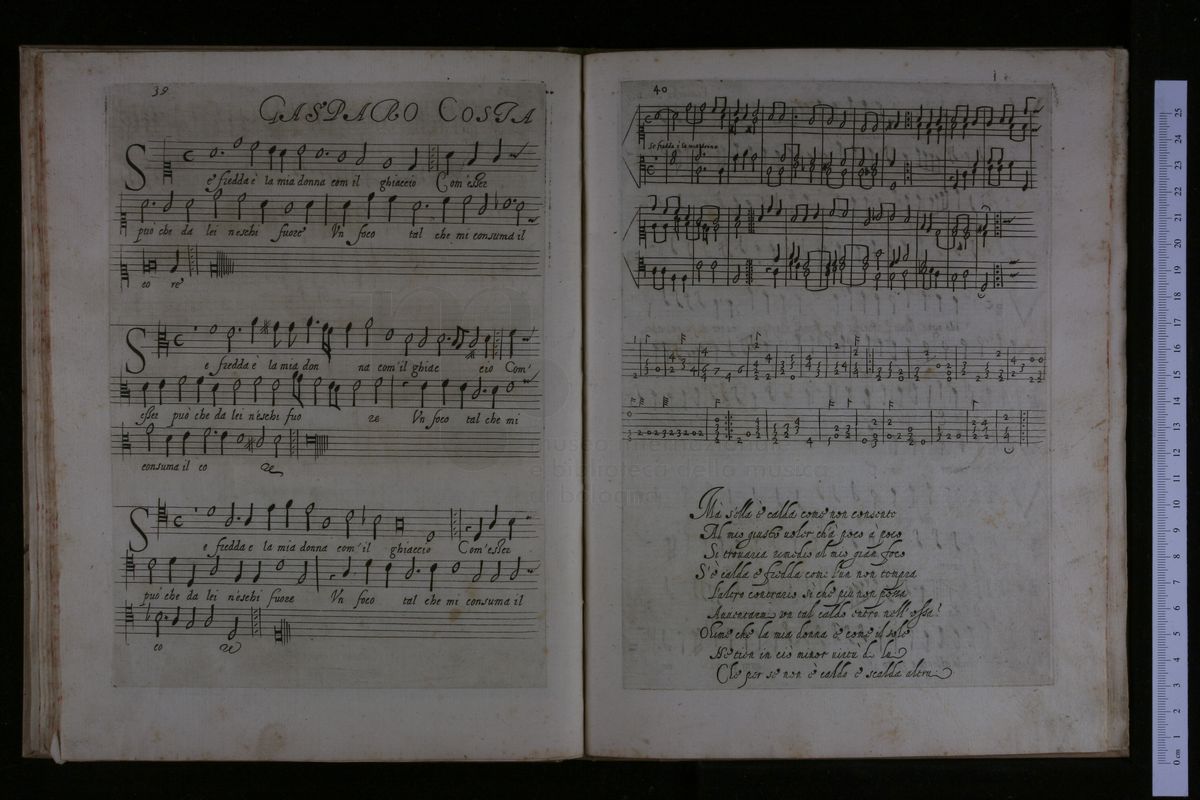 39
GASPARO COSTA
Se fredda è la mia donna com il ghiaccio Com'esser
può che da lei n'eschi fuore Vn foco tal che mi consuma il
co re
Se fredda è la mia don na com'il ghiac cio Com'
esser può che da lei n'eschi fuo re Vn foco tal che mi
consuma il co re
Se fredda e la mia donna com'il ghiaccio Com'esser
può che da lei n'eschi fuore Vn foco tal che mi consuma il
co re
40
Se fredda è la mia donna
Mà s'ella è calda come non consente
Al mio giusto voler ch'à poco à poco
Si trouaria rimedio al mio gran foco
S'è calda e fredda come l'un non tempra
L'altro contrario si che più non possa
Auuentarmi vn tal caldo entro nell'ossa?
Oime che la mia donna è come il sole
Ne tien in ciò minor uirtù di lu
Che per se non è caldo e scalda altrui
museo internazionale
e biblioteca della musica
di bologna
0 cm 1 2 3 4 5 6 7 8 9 10 11 12 13 14 15 16 17 18 19 20 21 22 23 24 25